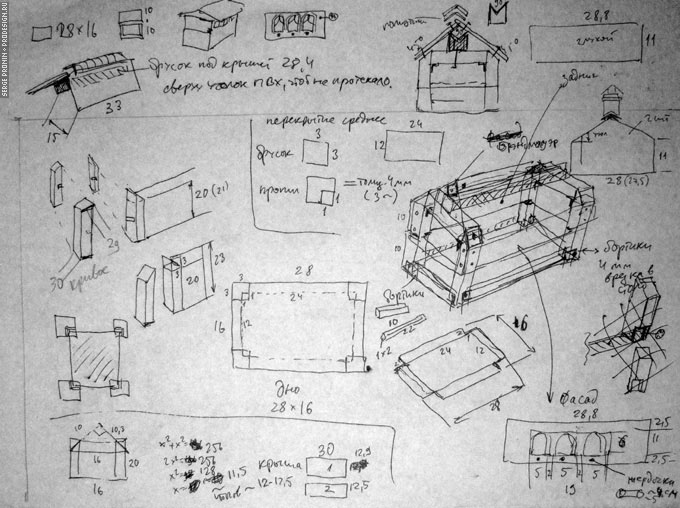 SERGE PRONIN • PRODESIGN.RU
28×16
10
10
28,8
глухой
11
брусок под крышей 28,4
сверху уголок ПВХ, чтоб не протекало.
33
15
90
перекрытие среднее
3
брусок
3
24
12
1
1
= толщ. 4 мм
(3~)
задник
11
28 (27,5)
20 (21)
29
30 кривое
23
20
3
3
10
10
бортики
4 мм
28
3
3
24
16
12
Дно
28×16
бортики
10
22
1×2
16
24
12
28
Фасад
28,8
2,5
11
2,5
5
5
5
19
жердочки
10
10,3
16
20
16
x²+x²=256
2x²=256
x²=128
11,5
~ 12-12,5
крыша
30
1
12,9
2
12,5